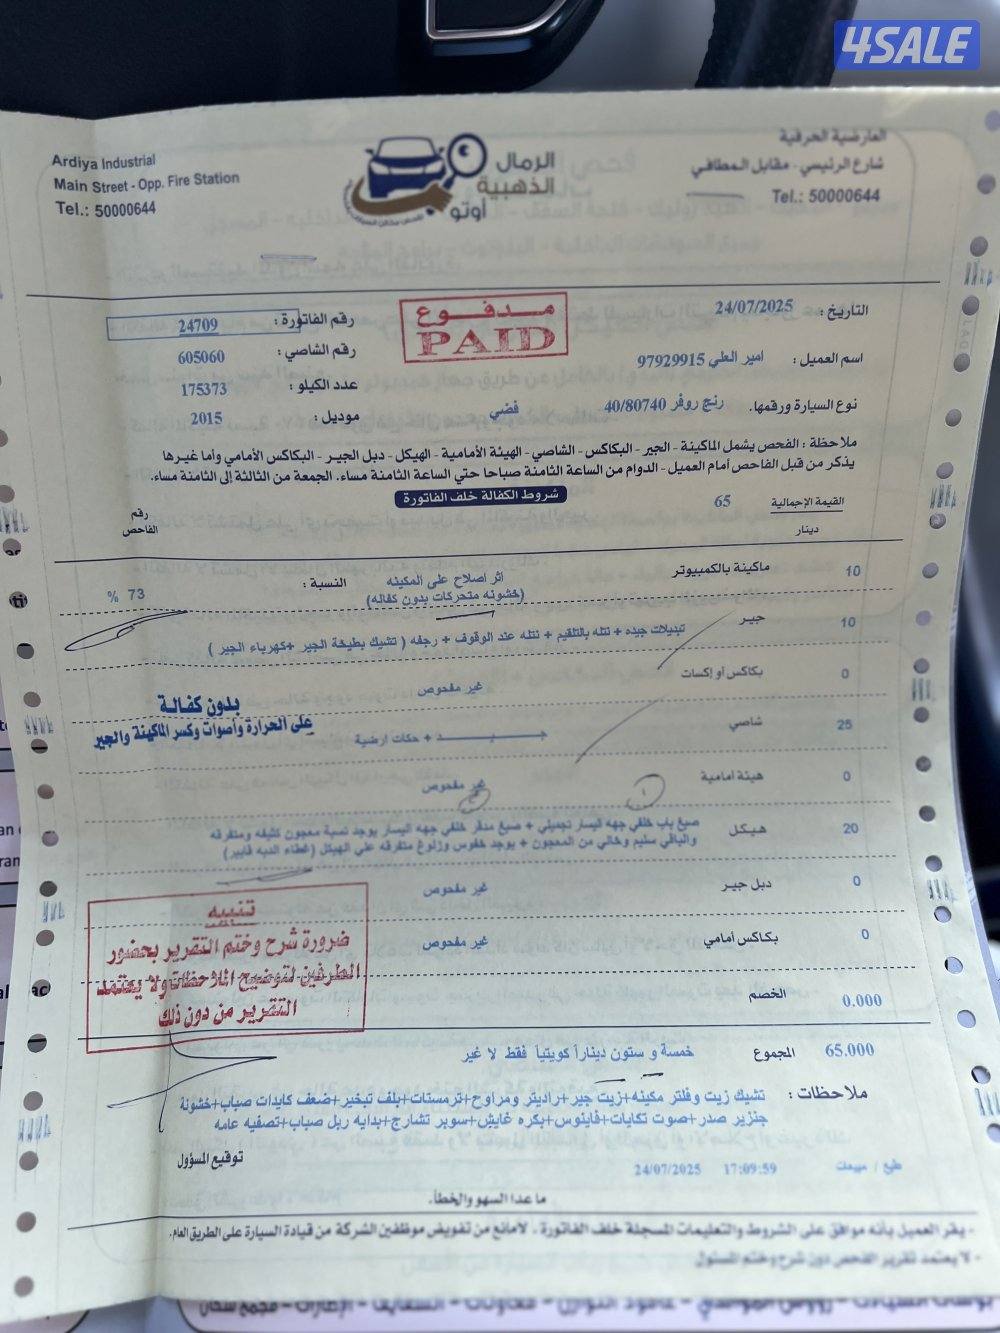 4SALE
Ardiya Industrial
Main Street - Opp. Fire Station
Tel.: 50000644
الرمال
الذهبية
أوتو
العارضية الحرفية
شارع الرئيسي - مقابل المطافي
Tel.: 50000644
التاريخ : 24/07/2025
مدفوع
PAID
رقم الفاتورة : 24709
اسم العميل : امير العلي 97929915
رقم الشاصي : 605060
نوع السيارة ورقمها. رنج روفر 40/80740 فضي
عدد الكيلو : 175373
موديل : 2015
ملاحظة : الفحص يشمل الماكينة - الجير - البكاكس - الشاصي - الهيئة الأمامية - الهيكل - دبل الجير - البكاكس الأمامي وأما غيرها
يذكر من قبل الفاحص أمام العميل - الدوام من الساعة الثامنة صباحا حتي الساعة الثامنة مساء. الجمعة من الثالثة إلى الثامنة مساء.
شروط الكفالة خلف الفاتورة
القيمة الإجمالية 65
دينار
رقم
الفاحص
10 ماكينة بالكمبيوتر اثر اصلاح على المكينه النسبة : 73 %
(خشونه متحركات بدون كفاله)
10 جير تبديلات جيده + نتله بالتلقيم + نتله عند الوقوف + رجفه ( تشيك بطيخة الجير +كهرباء الجير )
0 بكاكس أو إكسات غير مفحوص
بدون كفالة
على الحرارة وأصوات وكسر الماكينة والجير
25 شاصي + حكات ارضية
0 هيئة امامية غير مفحوص
20 هيكل صبغ باب خلفي جهه اليسار تجميلي + صبغ مدفر خلفي جهه اليسار يوجد نسبة معجون كثيفه ومتفرقه
والباقي سليم وخالي من المعجون + يوجد خفوس وزلوغ متفرقه على الهيكل (غطاء الدبه فايبر)
0 دبل جير غير مفحوص
0 بكاكس أمامي غير مفحوص
تنبيه
ضرورة شرح وختم التقرير بحضور
الطرفين لتوضيح الملاحظات ولا يعتمد
التقرير من دون ذلك
0.000 الخصم
65.000 المجموع خمسة و ستون ديناراً كويتياً فقط لا غير
ملاحظات : تشيك زيت وفلتر مكينه+زيت جير+راديتر ومراوح+ترمستات+بلف تبخير+ضعف كايدات صباب+خشونة
جنزير صدر+صوت تكايات+فاينوس+بكره غايش+سوبر تشارج+بدايه ربل صباب+تصفيه عامه
طبع / مبيعات 17:09:59 24/07/2025
توقيع المسؤول
ما عدا السهو والخطأ.
- يقر العميل بأنه موافق على الشروط والتعليمات المسجلة خلف الفاتورة . لامانع من تفويض موظفين الشركة من قيادة السيارة على الطريق العام.
- لا يعتمد تقرير الفحص دون شرح وختم المسئول